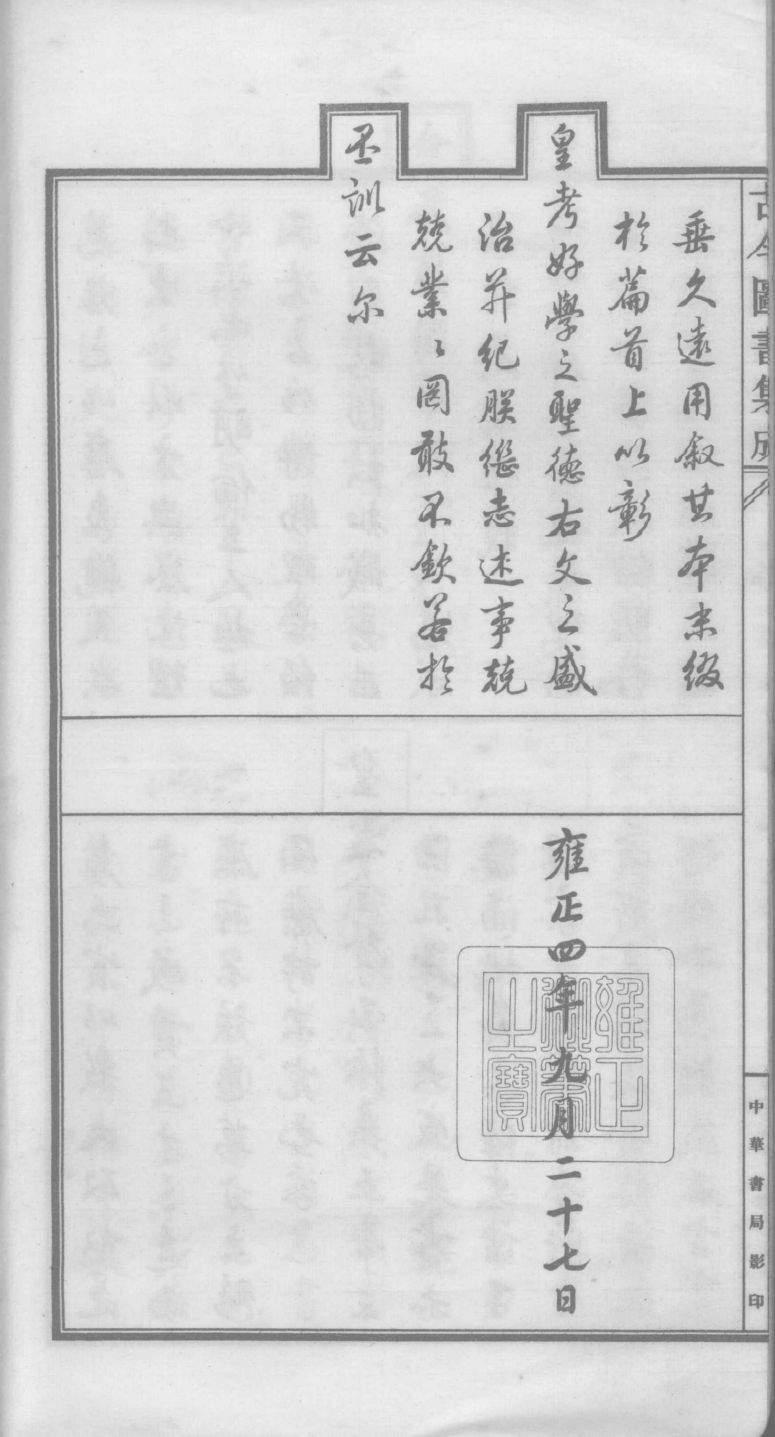 古今圖書集成
垂久遠用敘其本末綴
於篇首上以彰
皇考好學之聖德右文之盛
治并紀朕繼志述事兢
兢業〻罔敢不欽若於
丕訓云尔
雍正四年九月二十七日
雍正
御筆
之寶
中華書局影印